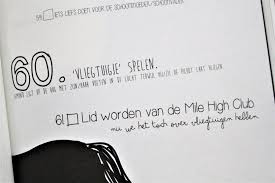 59. IETS LIEFS DOEN VOOR DE SCHOONMOEDER/SCHOONVADER
60. 'VLIEGTUIGJE' SPELEN.
LIGT OP DE RUG MET ZIJN/HAAR VOETEN IN DE LUCHT TERWIJL HIJ/ZIJ DE ANDER LAAT VLIEGEN
61 Lid worden van de Mile High Club
nu we het toch over vliegtuigen hebben